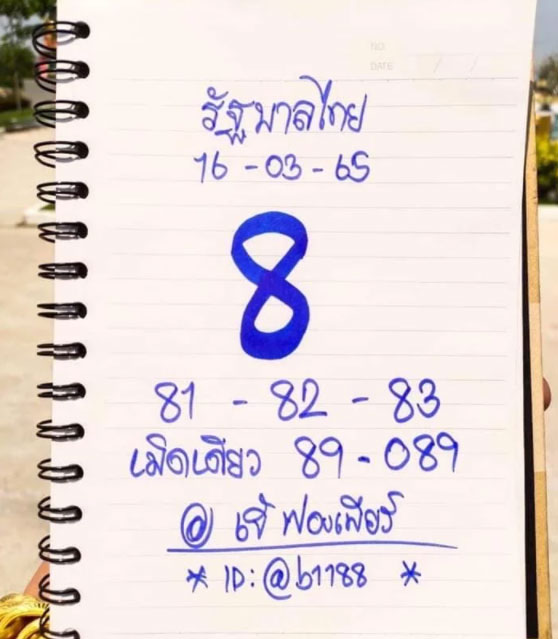 NO.
DATE / /
รัฐบาลไทย
16 - 03 - 65
8
81 - 82 - 83
เม็ดเดียว 89 - 089
@ เจ๊ฟองเบียร์
* ID: @b1188 *